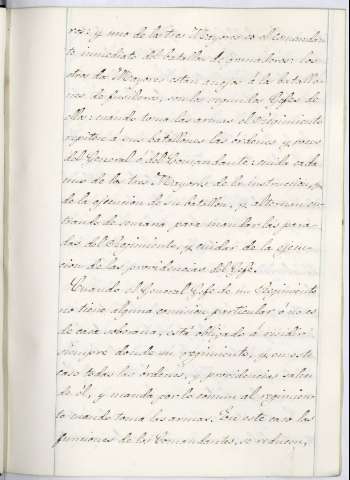 res: y uno de los tres Mayores es el Comandan-
te inmediato del batallon de granaderos: los
otros dos Mayores estan anejos á los batallo-
nes de fusileros, son los segundos Gefes de
ellos: cuando toma las armas el Regimiento
repiten á sus batallones las órdenes, y voces
del General ó del Comandante: cuida cada
uno de los tres Mayores de la instruccion, y
de la egecucion de su batallon, y alternan en-
trando de semana, para mandar las para-
das del Regimiento, y cuidar de la egecu-
cion de las providencias del Gefe.
Cuando el General Gefe de un Regimiento
no tiene alguna comision particular ó no es
de casa soberana, está obligado á residir
siempre donde su regimiento, y en este
caso todas las órdenes, y providencias salen
de él, y manda por lo comun al regimien-
to cuando toma las armas. En este caso las
funciones de los Comandantes, se reducen,